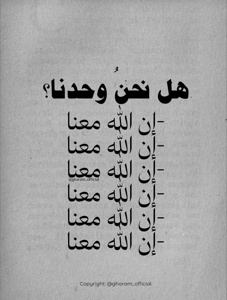 هل نحنُ وحدنا؟
-إن الله معنا
-إن الله معنا
-إن الله معنا
@ghoram_official
-إن الله معنا
-إن الله معنا
-إن الله معنا
Copyright: @ghoram_official